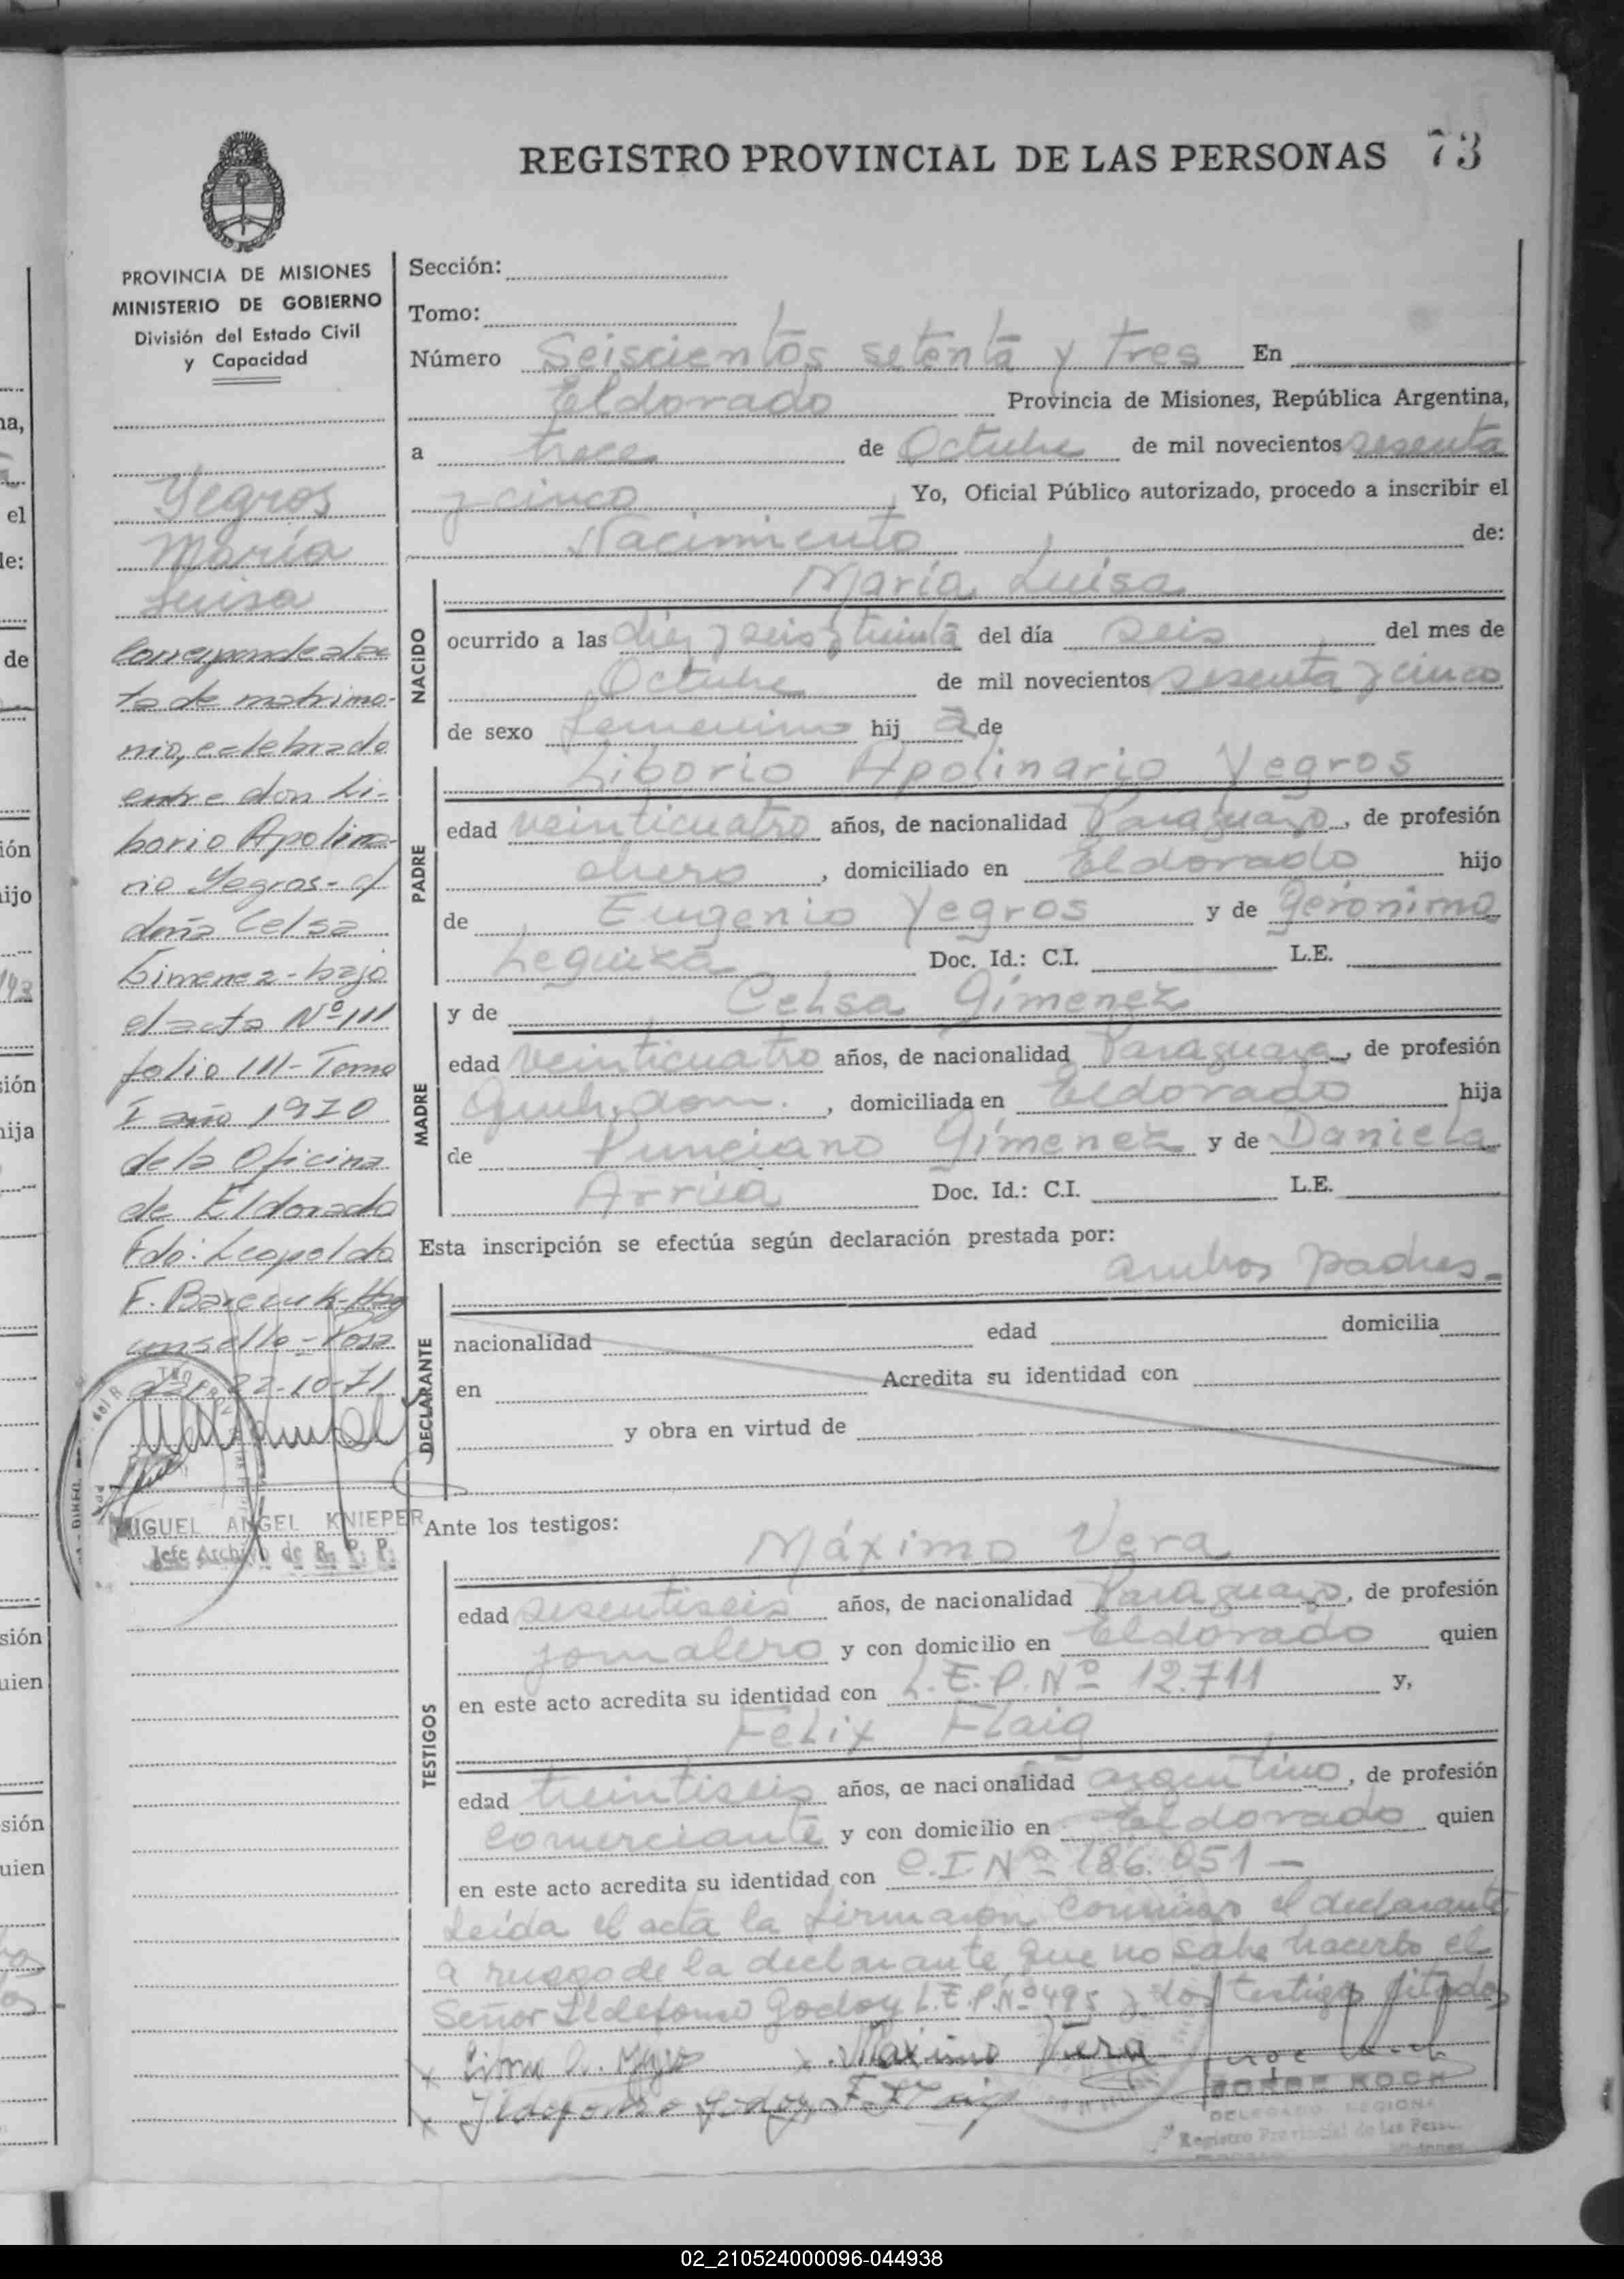 REGISTRO PROVINCIAL DE LAS PERSONAS 73
PROVINCIA DE MISIONES
MINISTERIO DE GOBIERNO
División del Estado Civil
y Capacidad
Yegros
María
Luisa
Corresponde al ac
ta de matrimo-
nio, celebrado
entre don Li-
borio Apolina-
rio Yegros - c/
doña Celsa
Gimenez - bajo
el acta Nº 111
folio 111 - Tomo
I año 1970
de la Oficina
de Eldorado
Fdo: Leopoldo
F.
un sello - Posa
das 22-10-71
MIGUEL ANGEL KNIEPER
Jefe Archivo de R. P. P.
Sección:
Tomo:
Número Seiscientos setenta y tres En
Eldorado Provincia de Misiones, República Argentina,
a trece de Octubre de mil novecientos sesenta
y cinco Yo, Oficial Público autorizado, procedo a inscribir el
Nacimiento de:
María Luisa
NACIDO
ocurrido a las diez y seis y treinta del día seis del mes de
Octubre de mil novecientos sesenta y cinco
de sexo femenino hij a de
Liborio Apolinario Yegros
PADRE
edad veinticuatro años, de nacionalidad Paraguayo, de profesión
obrero, domiciliado en Eldorado hijo
de Eugenio Yegros y de Gerónima
Leguiza Doc. Id.: C.I. L.E.
y de Celsa Gímenez
MADRE
edad veinticuatro años, de nacionalidad Paraguaya, de profesión
Queh. dom., domiciliada en Eldorado hija
de Punciano Gímenez y de Daniela
Arrúa Doc. Id.: C.I. L.E.
Esta inscripción se efectúa según declaración prestada por:
ambos padres.-
DECLARANTE
nacionalidad edad domicilia
en Acredita su identidad con
y obra en virtud de
Ante los testigos:
Máximo Vera
TESTIGOS
edad sesentiseis años, de nacionalidad Paraguayo, de profesión
jornalero y con domicilio en Eldorado quien
en este acto acredita su identidad con L.E.P. Nº 12.711 y,
Felix Flaig
edad treintiseis años, de nacionalidad argentino, de profesión
comerciante y con domicilio en Eldorado quien
en este acto acredita su identidad con C.I. Nº 186.051 -
Leída el acta la firman conmigo el declarante
a ruego de la declarante que no sabe hacerlo el
Señor Ildefonso Godoy L.E.P. Nº 495 y los testigos citados
Máximo Vera
Ildefonso Godoy F. Flaig
KOCH
DELEGADO REGIONAL
Registro Provincial de Las Perso
Misiones
02_210524000096-044938